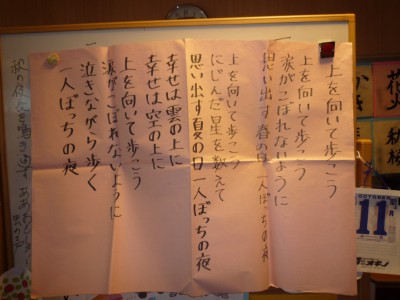 上を向いて歩こう
上を向いて歩こう
涙がこぼれないように
思い出す春の日 一人ぼっちの夜
上を向いて歩こう
にじんだ星を数えて
思い出す夏の日 一人ぼっちの夜
幸せは雲の上に
幸せは空の上に
上を向いて歩こう
涙がこぼれないように
泣きながら歩く
一人ぼっちの夜
花火
OCTOBER
11